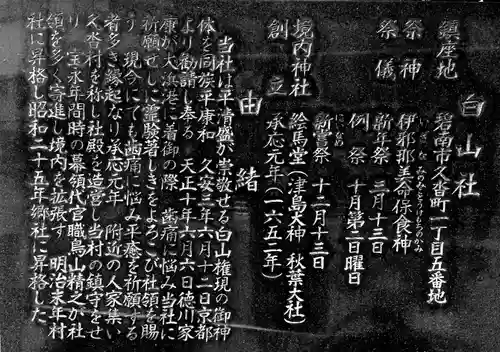 白山社
鎮座地 碧南市久沓町一丁目五番地
祭神 伊邪那美命保食神
いざなみのみことうけもちのかみ
祭儀 新年祭 三月十三日
例祭 十月第二日曜日
新嘗祭 十二月十三日
にいなめ
境内神社 絵馬堂(津島大神 秋葉大社)
創立 承応元年(一六五二年)
由緒
当社は平清盛が崇敬せる白山権現の御神
体を同族平康和 久安三年六月十二日京都
より勧請し奉る 天正十年六月六日徳川家
康が大浜港に着御の際 歯痛に悩み当社に
祈願せしに霊験著しきをよろこび社領を賜
う 現今にても歯痛に悩み平癒を祈願する
者多き縁起なり承応元年 附近の人家集い
久沓村を称し社殿を造営し当村の鎮守をせ
り 宝永年間時の幕領代官職鳥山精之が社
領を多く寄進し境内を拡張す 明治末年村
社に昇格し昭和二十五年郷社に昇格した